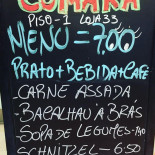 CUMARÁ
PISO-1 LOJA 33
MENÚ = 7,00
PRATO + BEBIDA + CAFÉ
- CARNE ASSADA
- BACALHAU À BRÁS
- SOPA DE LEGUMES - PÃO
SCHNITZEL - 6,50